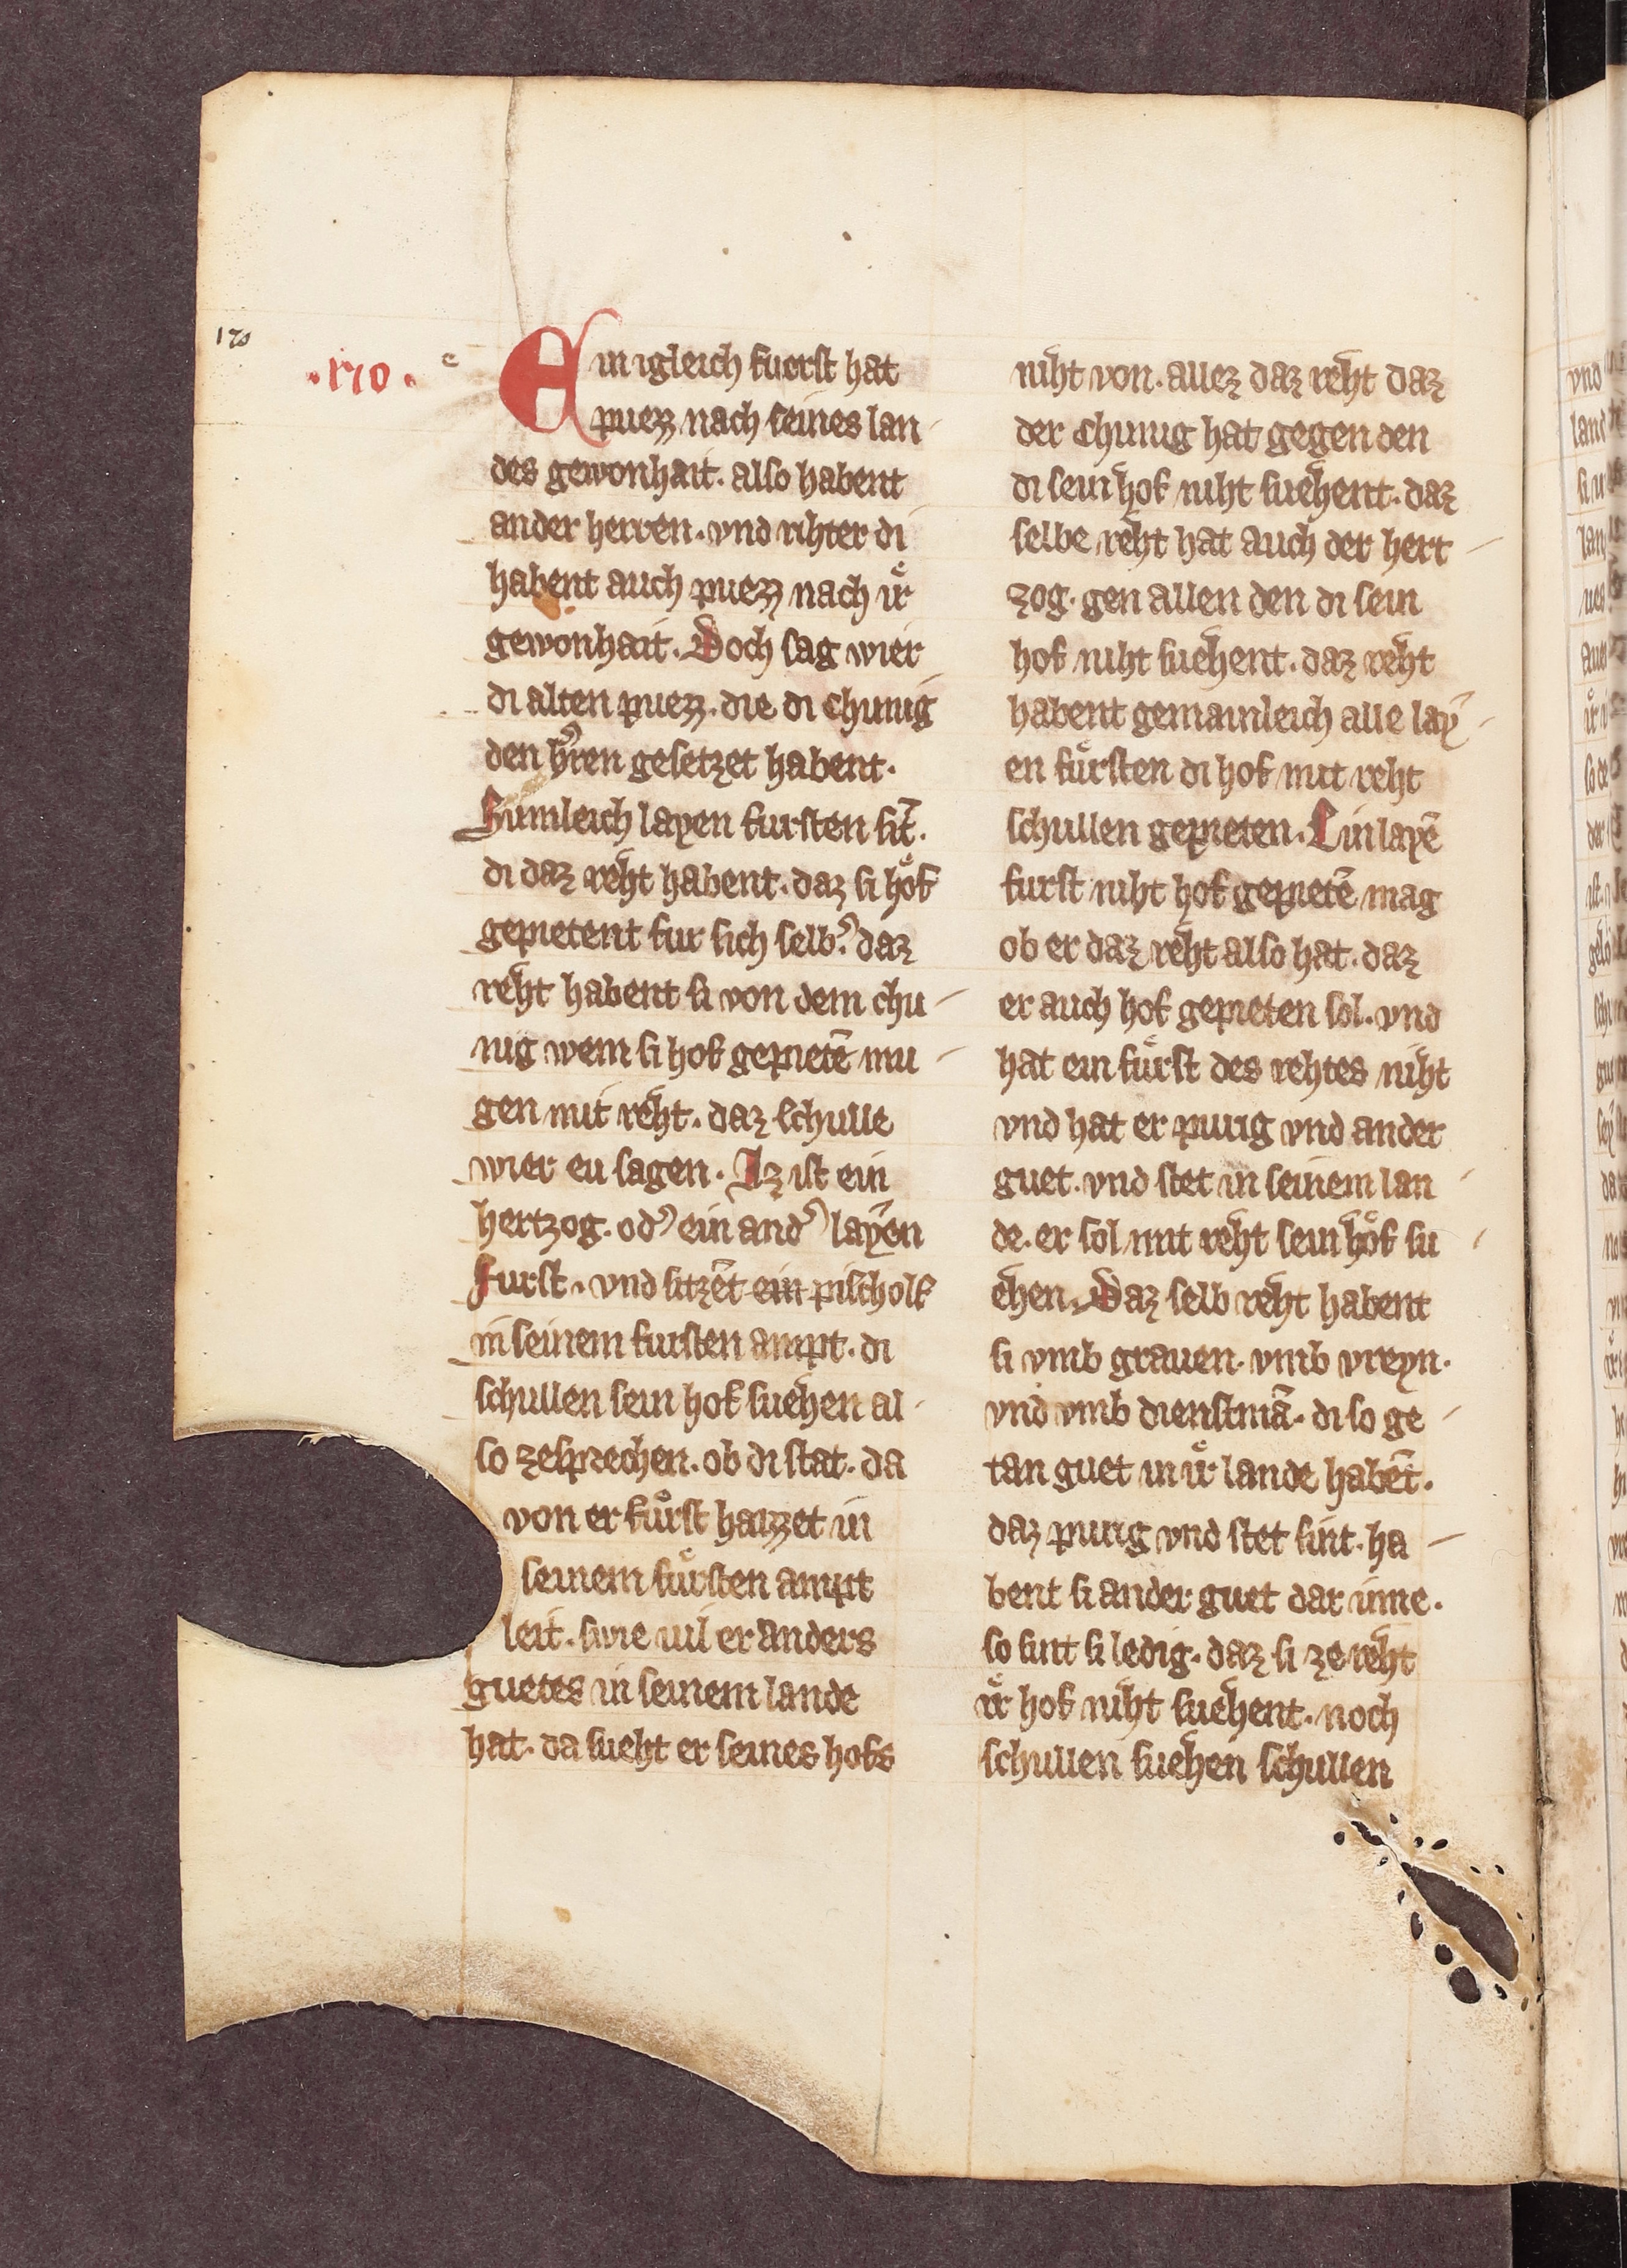 170
·170·
e
Ein igleich fuerst hat
puezz nach seines lan
des gewonhait. also habent
ander herren. vnd rihter di
habent auch puezz nach irͤ
gewonhait. Doch sag wier
di alten puezz. die di chunig
den h̾ren gesetzet habent.
Sumleich layen fursten sit̄.
di daz reht habent. daz si hoͤf
gepietent fur sich selb̾. daz
reht habent si von dem chu
nig wem si hof gepietē mu
gen mit reht. daz schulle
wier eu sagen. Iz ist ein
hertzog. od̾ ein and̾ layen
furst. vnd sitzet̄ ein pischolf
in seinem fursten ampt. di
schullen sein hof suehen al
so zesprechen. ob di stat. da
von er fuͤrst haizzet in
seinem fuͤrsten ampt
leit. swie uil er anders
guetes in seinem lande
hat. da sueht er seines hofs
niht von. allez daz reht daz
der chunig hat gegen den
di sein hof niht suehent. daz
selbe reht hat auch der hert
zog. gen allen den di sein
hof niht suehent. daz reht
habent gemainleich alle lay
en fuͤrsten di hof mit reht
schullen gepieten. Ein layē
furst niht hof gepietē mag
ob er daz reht also hat. daz
er auch hof gepieten sol. vnd
hat ein fuͤrst des rehtes niht
vnd hat er purig vnd ander
guet. vnd stet in seinem lan
de. er sol mit reht sein hoͤf su
ehen. Daz selb reht habent
si vmb grauen. vmb vreyn.
vnd vmb dienstmā. di so ge
tan guet in irͤ lande habet̄.
daz purig vnd stet sint. ha
bent si ander guet dar inne.
so sint si ledig. daz si ze reht
irͤ hof niht suehent. noch
schullen suehen schullen